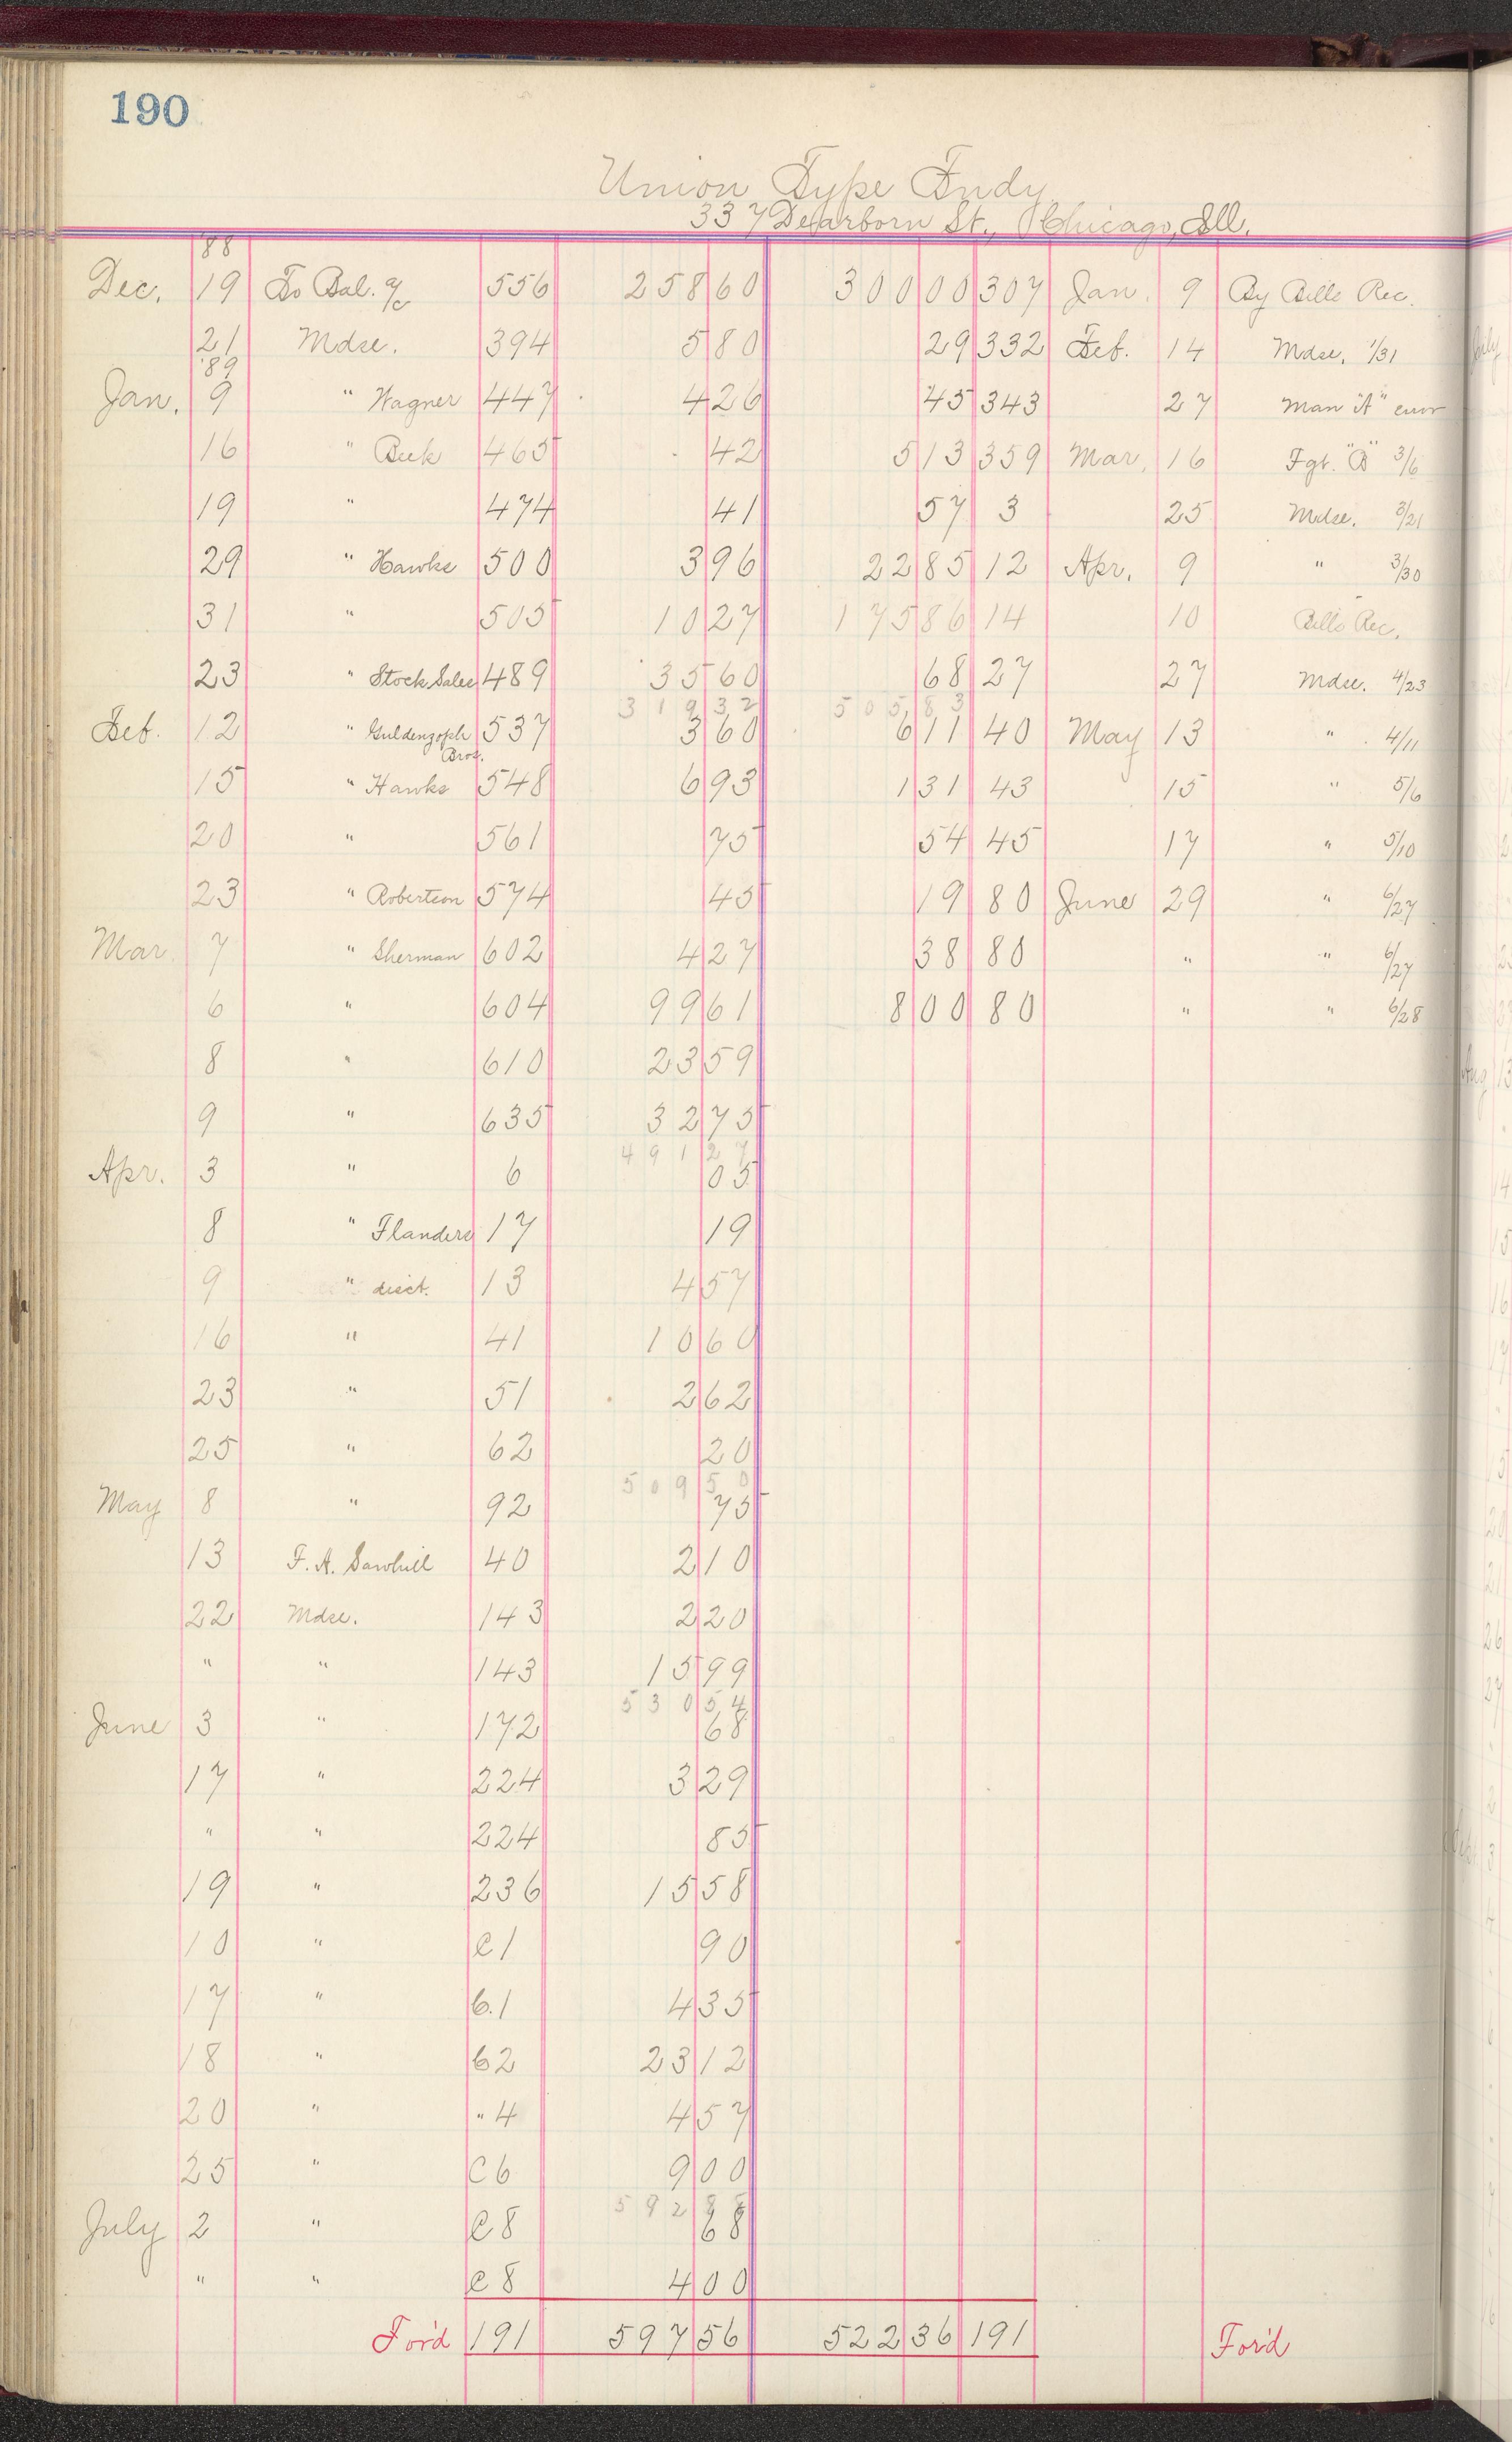 190
Union Type Fndy
337 Dearborn St., Chicago, Ill.
'88
Dec. 19 To Bal. a/c 556 258 60 300 00 307 Jan. 9 By Bills Rec.
21 Mdse. 394 5 80 29 332 Feb. 14 Mdse. 1/31
'89
Jan. 9 " Wagner 447 4 26 45 343 27 Man "A" error
16 " Beek 465 42 5 13 359 Mar. 16 Fgt. "B" 3/6
19 " 474 41 57 3 25 Mdse. 3/21
29 " Hawks 500 3 96 22 85 12 Apr. 9 " 3/30
31 " 505 10 27 175 86 14 10 Bills Rec.
23 " Stock Sales 489 35 60 68 27 27 Mdse. 4/23
319 32 505 83
Feb. 12 " Guldenzoph Bros. 537 3 60 6 11 40 May 13 " 4/11
15 " Hawks 548 6 93 1 31 43 15 " 5/6
20 " 561 75 54 45 17 " 5/10
23 " Robertson 574 45 19 80 June 29 " 6/27
Mar. 7 " Sherman 602 4 27 38 80 " " 6/27
6 " 604 99 61 8 00 80 " " 6/28
8 " 610 23 59
9 " 635 32 75
491 27
Apr. 3 " 6 05
8 " Flanders 17 19
9 " disct. 13 4 57
16 " 41 10 60
23 " 51 2 62
25 " 62 20
509 50
May 8 " 92 75
13 F. A. Sawhill 40 2 10
22 Mdse. 143 2 20
" " 143 15 99
530 54
June 3 " 172 68
17 " 224 3 29
" " 224 85
19 " 236 15 58
10 " C1 90
17 " 61 4 35
18 " 62 23 12
20 " " 4 4 57
25 " C6 9 00
592 88
July 2 " C8 68
" " C8 4 00
For'd 191 597 56 522 36 191 For'd